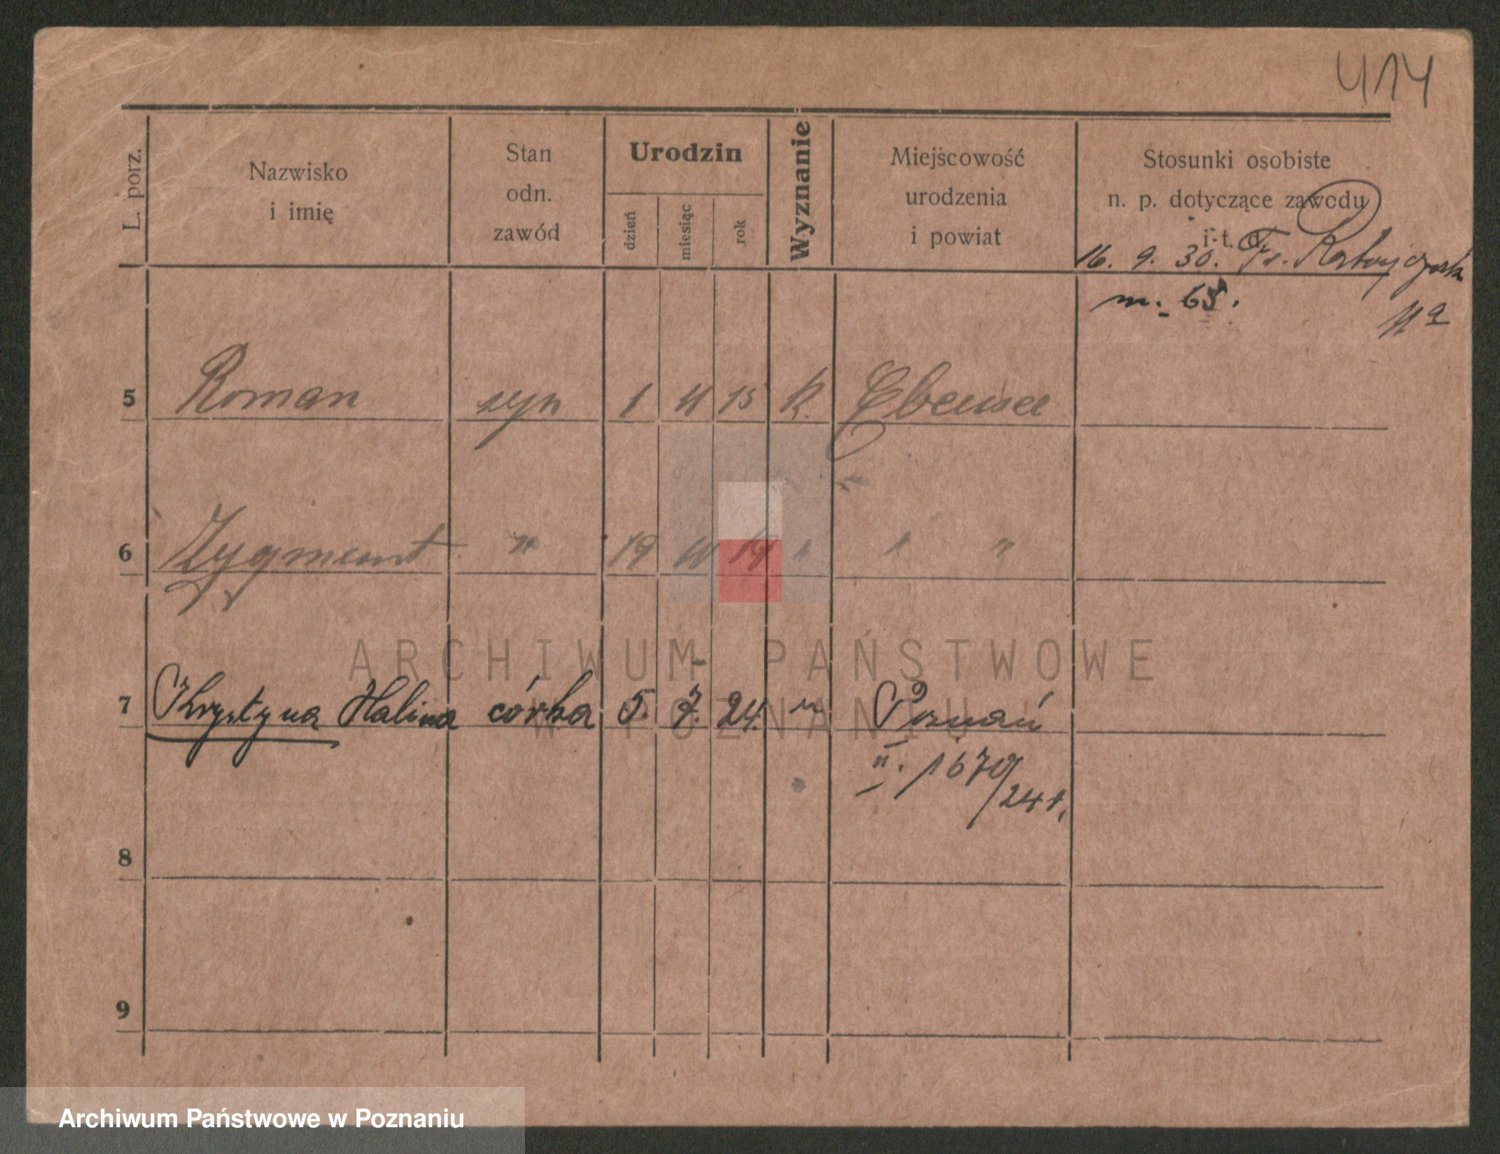 414
L. porz.
Nazwisko
i imię
Stan
odn.
zawód
Urodzin
dzień
miesiąc
rok
Wyznanie
Miejscowość
urodzenia
i powiat
Stosunki osobiste
n. p. dotyczące zawodu
i t. d.
16. 9. 30. Fr. Ratajczaka
m. 65.
5 Roman syn 1 11 15 k. Ebensee
6 Zygmunt " 19 19 " " "
7 Krystyna Halina córka 5. 7. 24. " Poznań
II. 1670/24 r.
8
9
ARCHIWUM PAŃSTWOWE
W POZNANIU
Archiwum Państwowe w Poznaniu